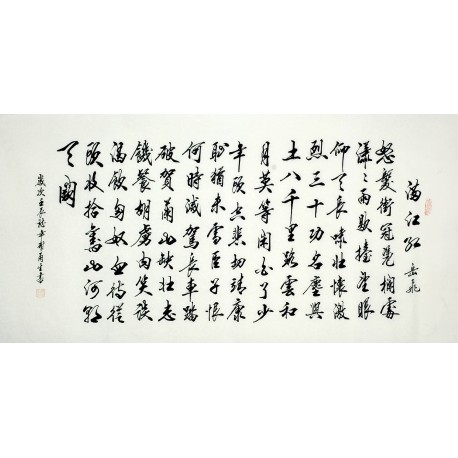 滿江紅 岳飛
怒髮衝冠憑欄處
瀟〻雨歇擡望眼
仰天長嘯壯懷激
烈三十功名塵與
土八千里路雲和
月莫等閑白了少
年頭空悲切靖康
恥猶未雪臣子恨
何時滅駕長車踏
破賀蘭山缺壯志
饑餐胡虜肉笑談
渴飲匈奴血待從
頭收拾舊山河朝
天闕
歲次壬辰